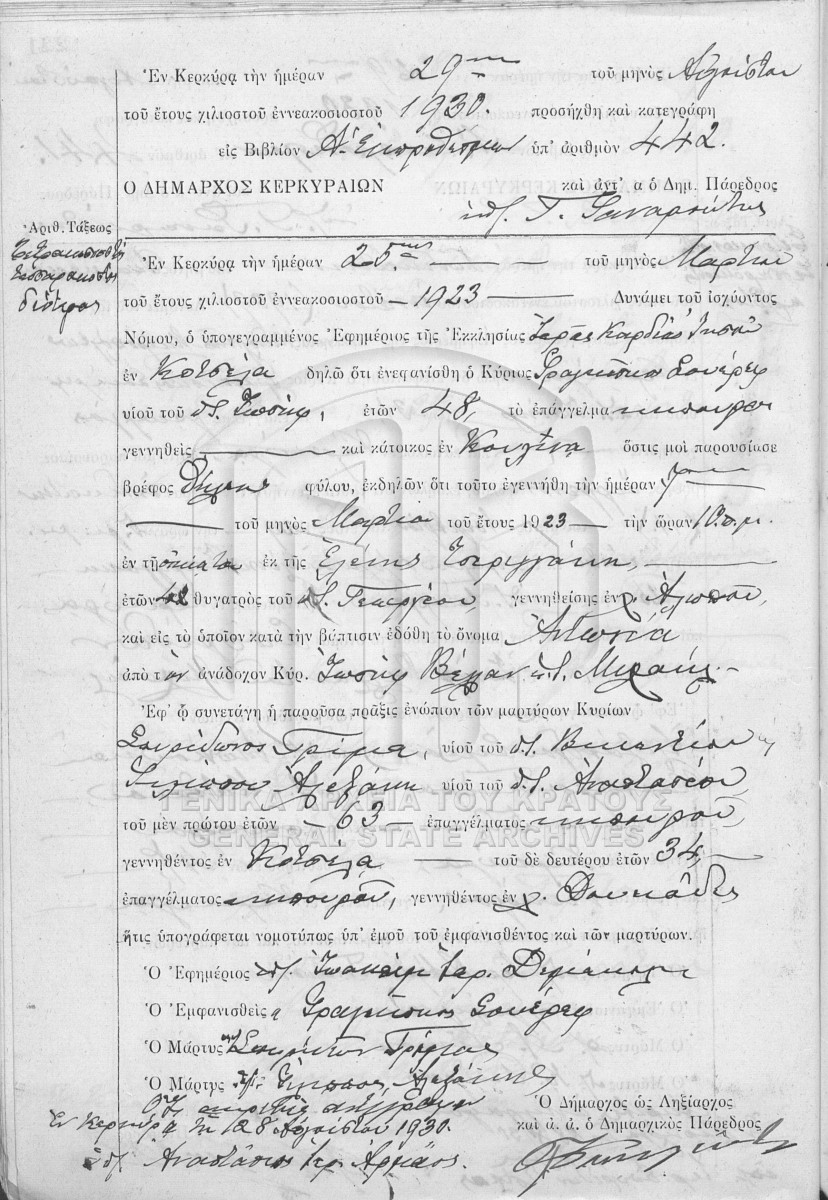 Ἐν Κερκύρᾳ τὴν ἡμέραν 29ην τοῦ μηνὸς Αὐγούστου
τοῦ ἔτους χιλιοστοῦ ἐννεακοσιοστοῦ 1930. προσήχθη καὶ κατεγράφη
εἰς Βιβλίον Α. Ἐκπροθέσμων ὑπ' ἀριθμὸν 442.
Ο ΔΗΜΑΡΧΟΣ ΚΕΡΚΥΡΑΙΩΝ καὶ ἀντ' α ὁ Δημ. Πάρεδρος
ὑπ. Γ.
Ἀριθ. Τάξεως
Τετρακοσιοστὸς
τεσσαρακοστὸς
δεύτερος
Ἐν Κερκύρᾳ τὴν ἡμέραν 25ην τοῦ μηνὸς Μαρτίου
τοῦ ἔτους χιλιοστοῦ ἐννεακοσιοστοῦ – 1923 – Δυνάμει τοῦ ἰσχύοντος
Νόμου, ὁ ὑπογεγραμμένος Ἐφημέριος τῆς Ἐκκλησίας Ἱερᾶς Καρδίας Ἰησοῦ
ἐν Κοτσέλα δηλῶ ὅτι ἐνεφανίσθη ὁ Κύριος Φραγκίσκος Σουέρεφ
υἱοῦ τοῦ π. Ἰωσήφ, ἐτῶν 48, τὸ ἐπάγγελμα κηπουρὸς
γεννηθεὶς — καὶ κάτοικος ἐν Κουλίνα ὅστις μοὶ παρουσίασε
βρέφος θήλεος φύλου, ἐκδηλῶν ὅτι τοῦτο ἐγεννήθη τὴν ἡμέραν
— τοῦ μηνὸς Μαρτίου τοῦ ἔτους 1923 — τὴν ὥραν 10 π.μ.
ἐν τῇ οἰκίᾳ του ἐκ τῆς Ἑλένης Τσιριγγάκη, —
ἐτῶν 42 θυγατρὸς τοῦ π. Γεωργίου, γεννηθείσης ἐν χ. Ἀλωποῦ,
καὶ εἰς τὸ ὁποῖον κατὰ τὴν βάπτισιν ἐδόθη τὸ ὄνομα Ἀντωνία
ἀπὸ τὸν ἀνάδοχον Κύρ. Ἰωσὴφ Βέλλαν π. Μιχαήλ. –
Ἐφ' ᾧ συνετάγη ἡ παροῦσα πρᾶξις ἐνώπιον τῶν μαρτύρων Κυρίων
Σπυρίδωνος Γρίμα, υἱοῦ τοῦ π. Βικεντίου ἢ
Φιλίππου Ἀλεξάκη υἱοῦ τοῦ π. Ἀναστασίου,
ΓΕΝΙΚΑ ΑΡΧΕΙΑ ΤΟΥ ΚΡΑΤΟΥΣ
τοῦ μὲν πρώτου ἐτῶν – 63 – ἐπαγγέλματος κηπουροῦ,
GENERAL STATE ARCHIVES
γεννηθέντος ἐν Κοτσέλα, — τοῦ δὲ δευτέρου ἐτῶν 34, –
ἐπαγγέλματος κηπουροῦ, γεννηθέντος ἐν χ. Δουκάδες
ἥτις ὑπογράφεται νομοτύπως ὑπ' ἐμοῦ τοῦ ἐμφανισθέντος καὶ τῶν μαρτύρων.
Ὁ Ἐφημέριος ὑπ. Ἰωακεὶμ ἱερ.
Ὁ Ἐμφανισθεὶς Φραγκίσκος Σουέρεφ
Ὁ Μάρτυς Σπυρίδων Γρίμας
Ὁ Μάρτυς Φίλιππος Ἀλεξάκης
Ὅτι ἀκριβὲς ἀντίγραφον
Ἐν Κερκύρᾳ τῇ 28 Αὐγούστου 1930.
ὑπ. Ἀναστάσιος ἱερ.
Ὁ Δήμαρχος ὡς Ληξίαρχος
καὶ ἀ. ἀ. ὁ Δημαρχικὸς Πάρεδρος